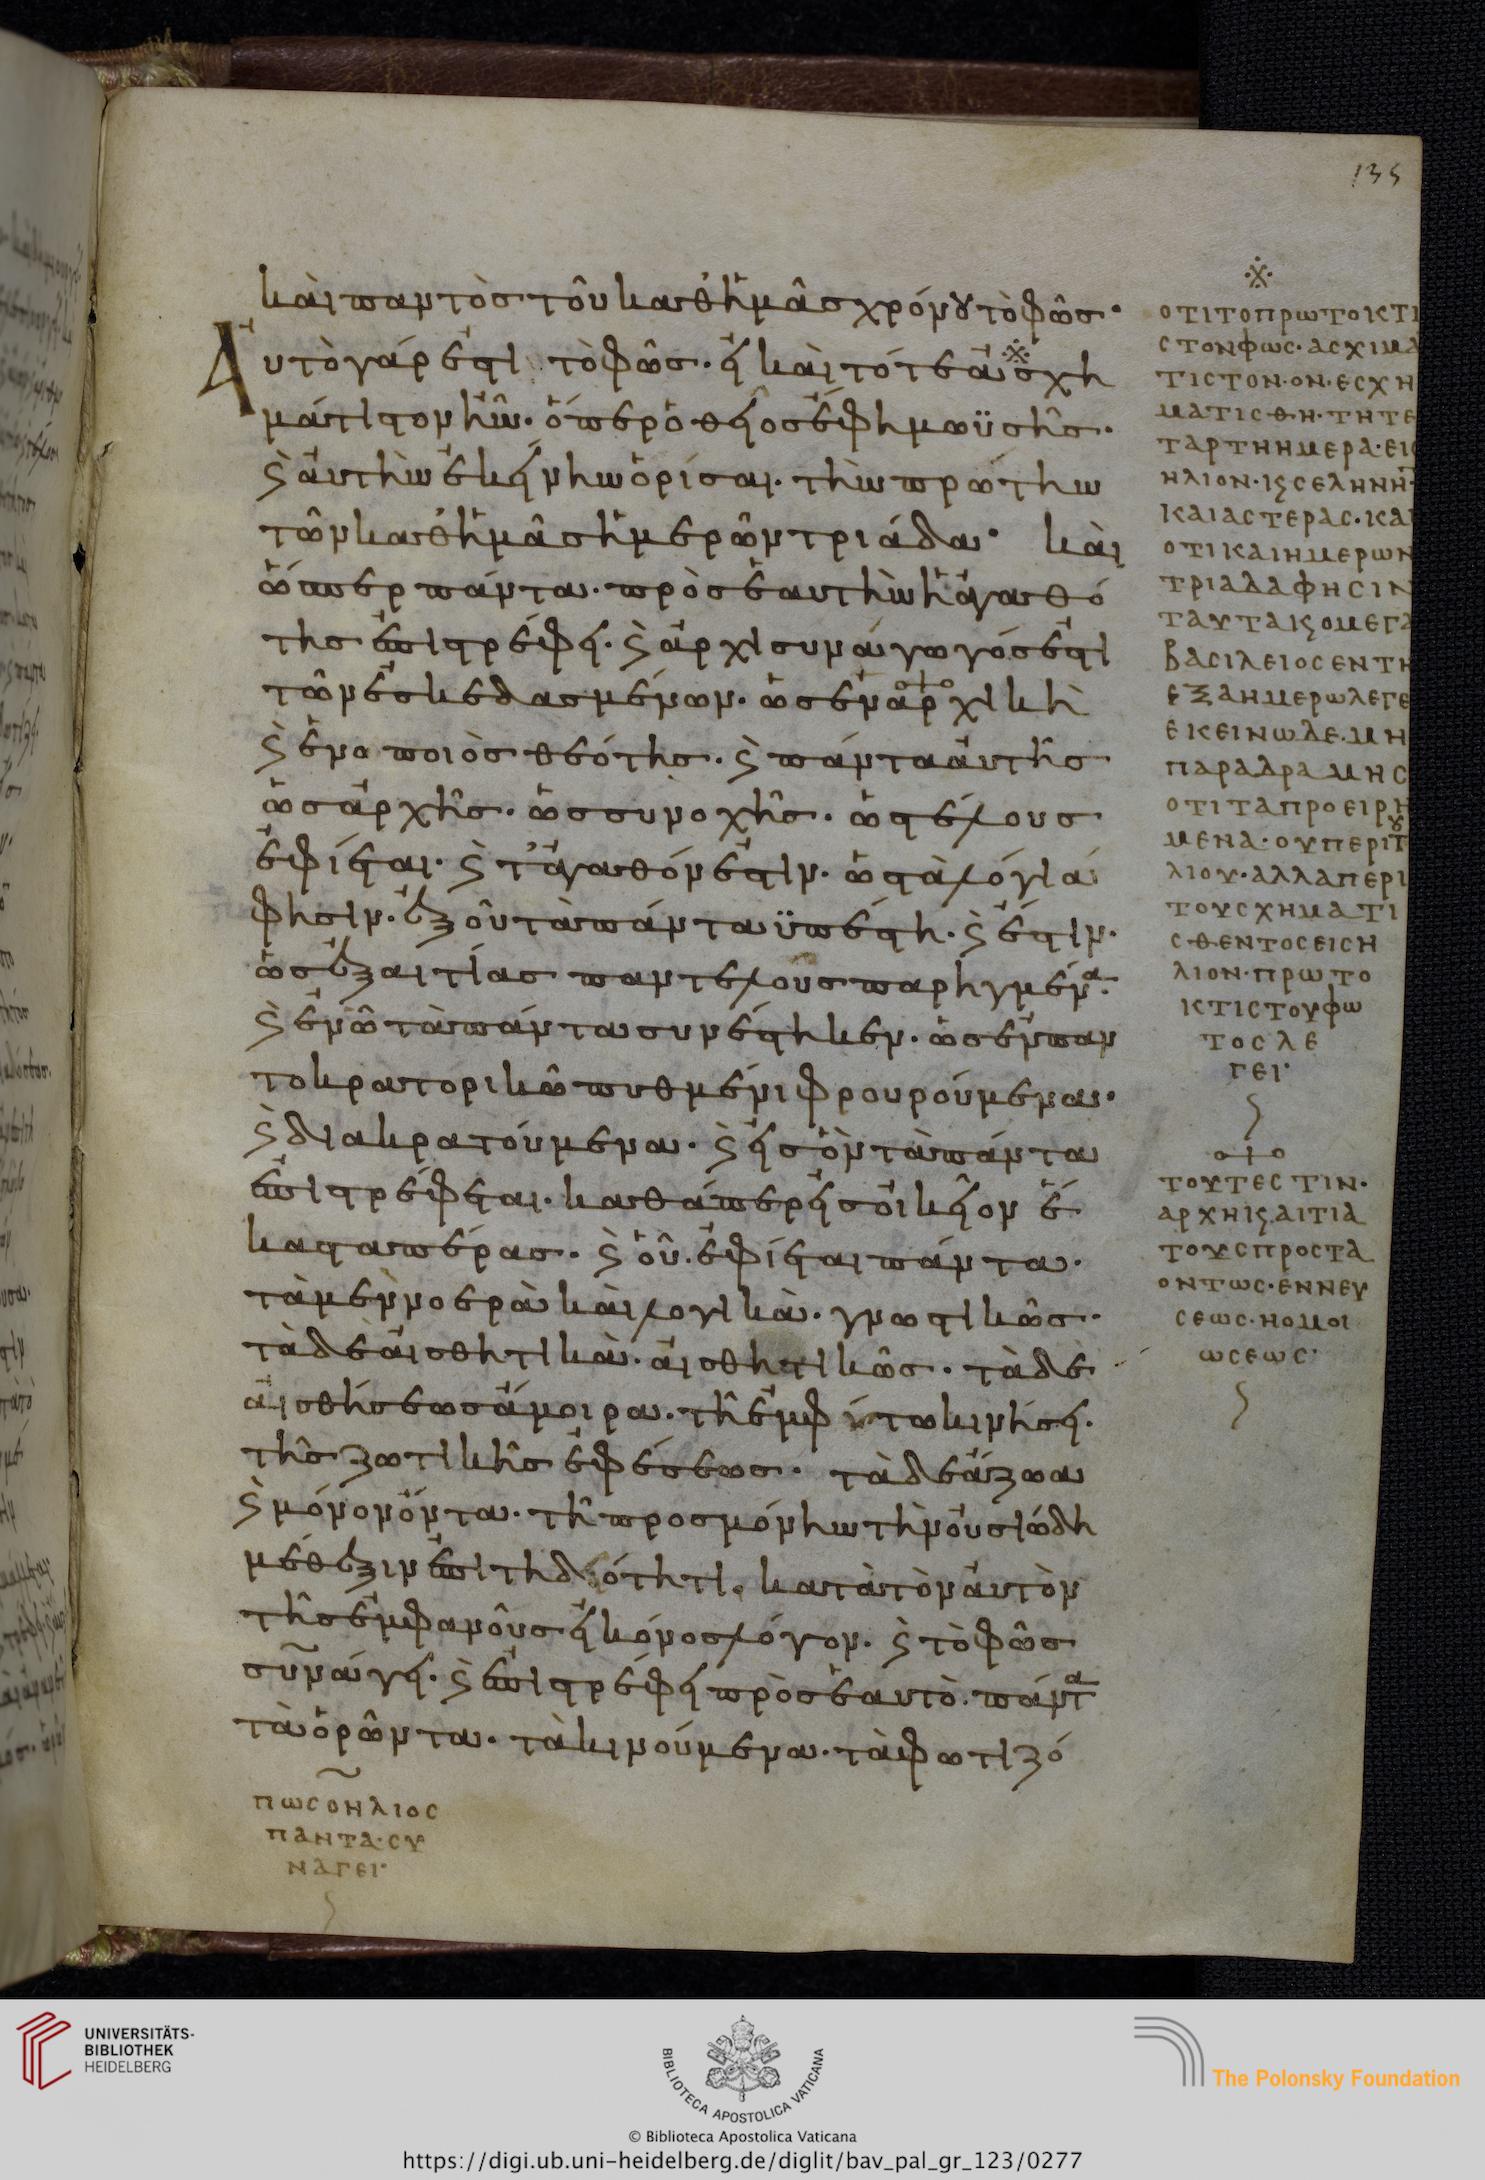 135
καὶ παντὸς τοῦ καθ' ἡμᾶς χρόνου τὸ φῶς·
Αὐτὸ γάρ ἐστι τὸ φῶς· εἰ καὶ τότε ἀσχη
μάτιστον ἦν· ὅπερ ὁ θεῖος ἔφη μωϋσῆς·
καὶ αὐτὴν ἐκείνην ὁρίσαι· τὴν πρώτην
τῶν καθ' ἡμᾶς ἡμερῶν τριάδα· καὶ
ὥσπερ πάντα· πρὸς ἑαυτὴν ἡ ἀγαθό
της ἐπιστρέφει· καὶ ἀρχισυναγωγός ἐστι
τῶν ἐσκεδασμένων· ὡς ἐναρχικὴ
καὶ ἑνοποιὸς θεότης· καὶ πάντα αὐτῆς
ὡς ἀρχῆς· ὡς συνοχῆς· ὡς τέλους
ἐφίεται· καὶ τἀγαθόν ἐστιν· ὡς τὰ λόγιά
φησιν· ἐξ οὗ τὰ πάντα ὑπέστη· καὶ ἔστιν·
ὡς ἐξ αἰτίας παντελοῦς παρηγμένα·
καὶ ἐν ᾧ τὰ πάντα συνέστηκεν· ὡς ἐν παν
τοκρατορικῷ πυθμένι φρουρούμενα·
καὶ διακρατούμενα· καὶ εἰς ὃν τὰ πάντα
ἐπιστρέφεται· καθάπερ εἰς οἰκεῖον ἕ
καστα πέρας· καὶ οὗ ἐφίεται πάντα·
τὰ μὲν νοερὰ καὶ λογικὰ· γνωστικῶς·
τὰ δὲ αἰσθητικὰ· αἰσθητικῶς· τὰ δὲ
αἰσθήσεως ἄμοιρα· τῆ ἐμφύτω κινήσει·
τῆς ζωτικῆς ἐφέσεως· τὰ δὲ ἄζωα
καὶ μόνον ὄντα· τῆ πρὸς μόνην τὴν οὐσιώδη
μέθεξιν ἐπιτηδειότητι· κατὰ τὸν αὐτὸν
τῆς ἐμφανοῦς εἰκόνος λόγον· καὶ τὸ φῶς
συνάγει· καὶ ἐπιστρέφει πρὸς ἑαυτὸ· πάντα
τὰ ὁρῶντα· τὰ κινούμενα· τὰ φωτιζό
ΠΩΣ Ο ΗΛΙΟΣ
ΠΑΝΤΑ· ΣΥ
ΝΑΓΕΙ·
ΟΤΙ ΤΟ ΠΡΩΤΟΚΤΙ
ΣΤΟΝ ΦΩΣ· ΑΣΧΙΜΑ
ΤΙΣΤΟΝ· ΟΝ· ΕΣΧΗ
ΜΑΤΙΣΘΗ· ΤΗ ΤΕ
ΤΑΡΤΗ ΗΜΕΡΑ· ΕΙΣ
ΗΛΙΟΝ· Κ(ΑΙ) ΣΕΛΗΝΗΝ·
ΚΑΙ ΑΣΤΕΡΑΣ· ΚΑΙ
ΟΤΙ ΚΑΙ ΗΜΕΡΩΝ
ΤΡΙΑΔΑ ΦΗΣΙΝ
ΤΑΥΤΑ Κ(ΑΙ) Ο ΜΕΓΑ
ΒΑΣΙΛΕΙΟΣ ΕΝ ΤΗ
ΕΞΑΗΜΕΡΩ ΛΕΓΕ
ΕΚΕΙΝΩ ΔΕ· ΜΗ
ΠΑΡΑΔΡΑΜΗΣ
ΟΤΙ ΤΑ ΠΡΟΕΙΡΗ
ΜΕΝΑ· ΟΥ ΠΕΡΙ ΤΟΥ
ΛΙΟΥ· ΑΛΛΑ ΠΕΡΙ
ΤΟΥ ΣΧΗΜΑΤΙ
ΣΘΕΝΤΟΣ ΕΙΣ Η
ΛΙΟΝ· ΠΡΩΤΟ
ΚΤΙΣΤΟΥ ΦΩ
ΤΟΣ ΛΕ
ΓΕΙ·
ΤΟΥΤΕΣΤΙΝ·
ΑΡΧΗ Κ(ΑΙ) ΑΙΤΙΑ
ΤΟΥΣ ΠΡΟΣΤΑ
ΟΝΤΩΣ· ΕΝ ΝΕΥ
ΣΕΩΣ· Η ΟΜΟΙ
ΩΣΕΩΣ·
UNIVERSITÄTS-
BIBLIOTHEK
HEIDELBERG
BIBLIOTECA APOSTOLICA VATICANA
The Polonsky Foundation
© Biblioteca Apostolica Vaticana
https://digi.ub.uni-heidelberg.de/diglit/bav_pal_gr_123/0277